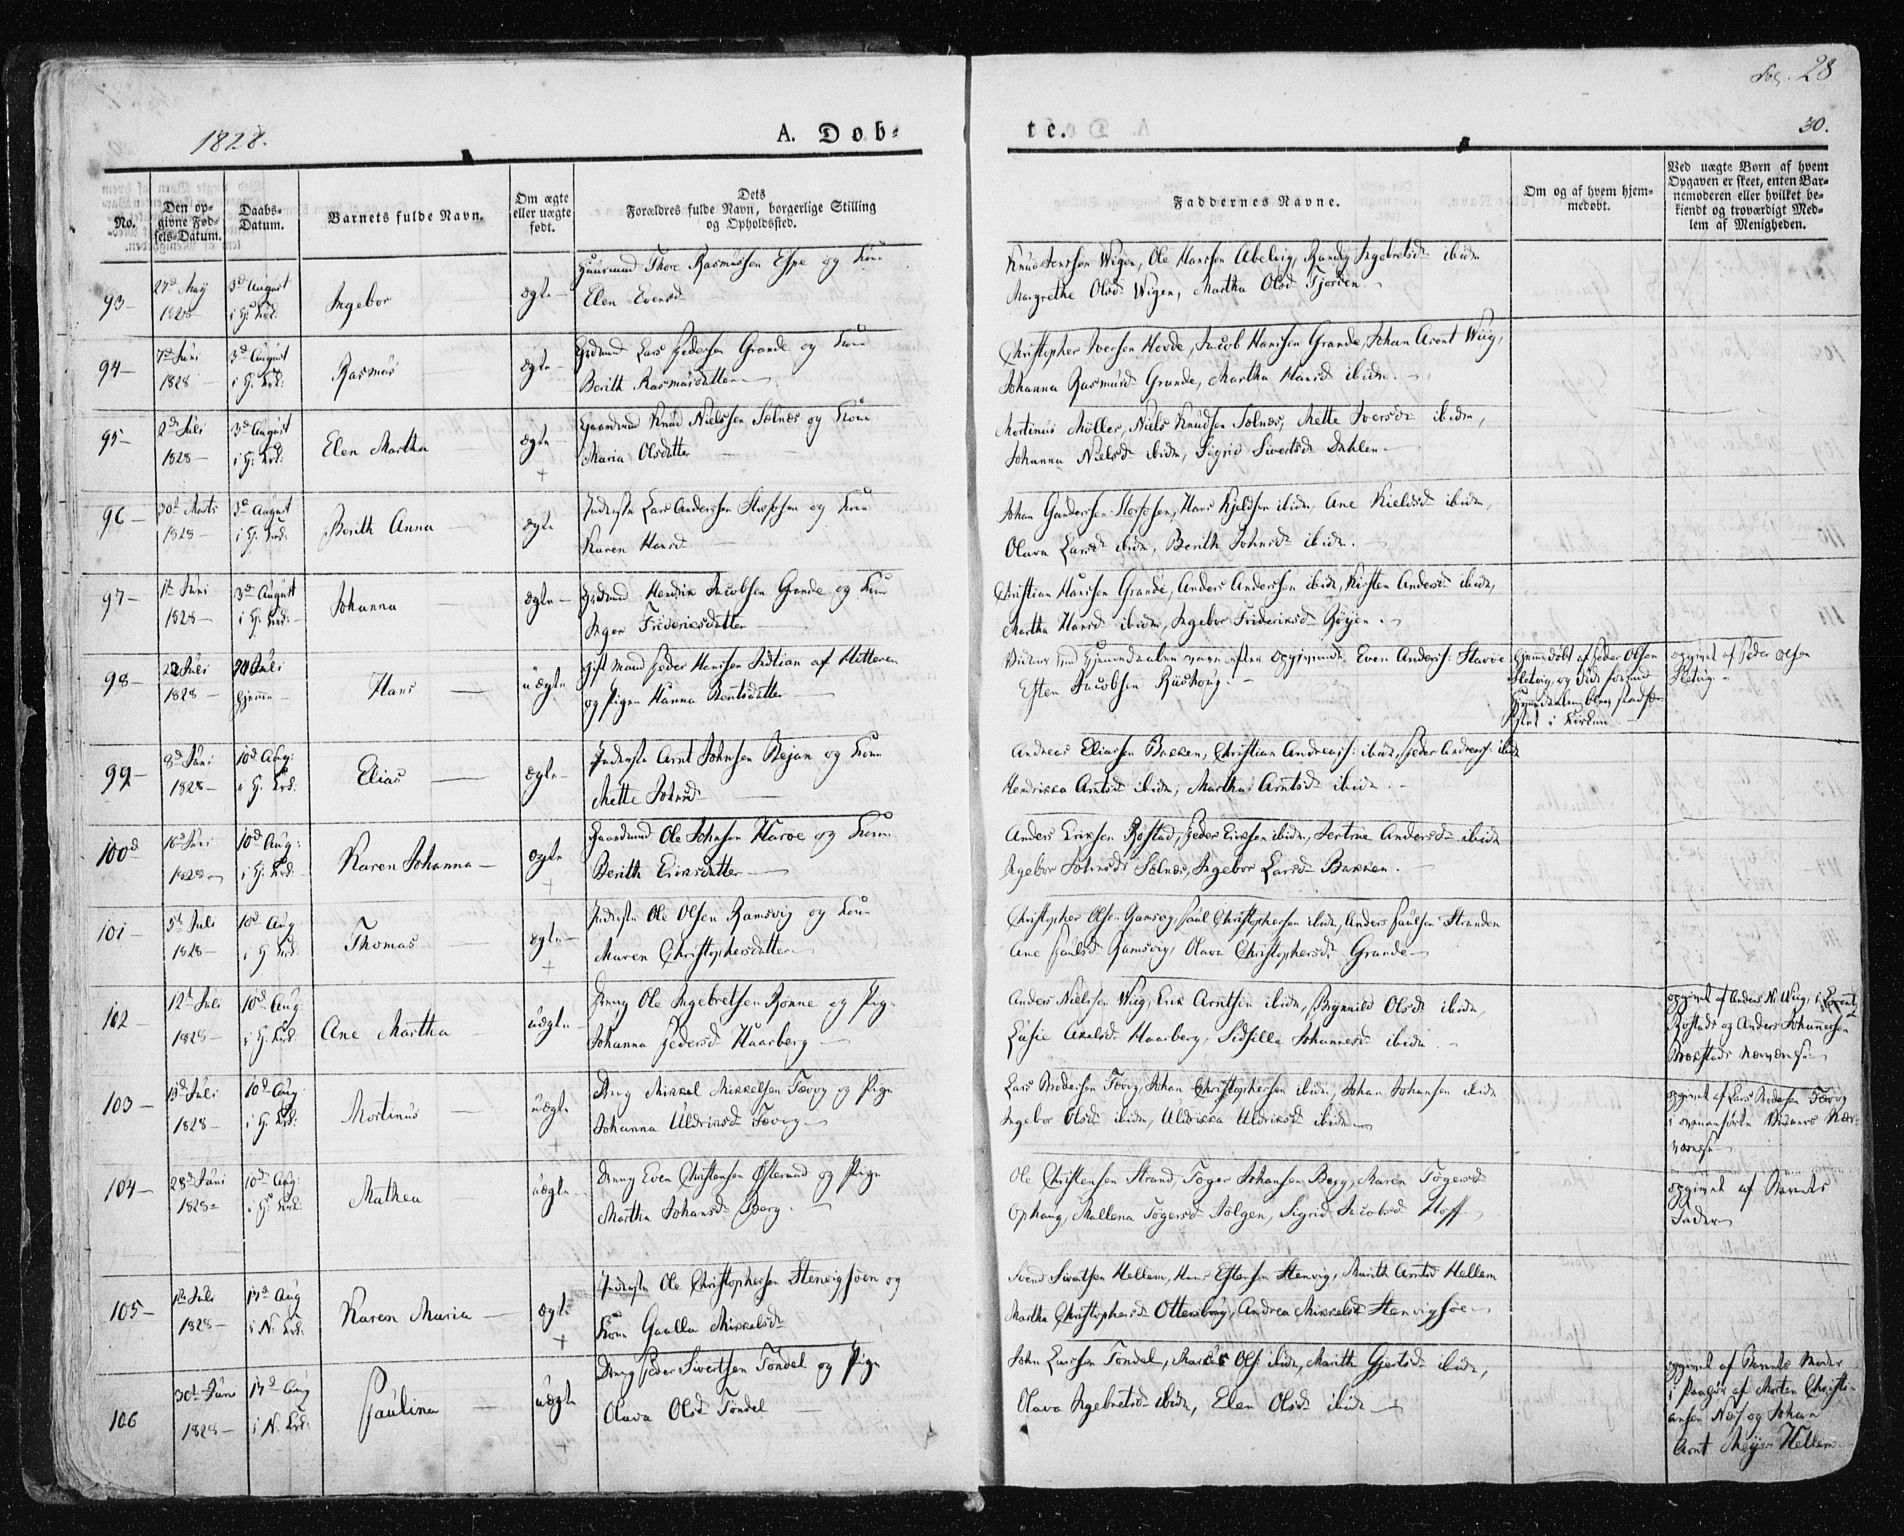 Fol. 28
1828.
A. Døb-
te.
30.
No.
Den op-
givne Fød-
sels-Datum.
Daabs-
Datum.
Barnets fulde Navn.
Om ægte
eller uægte
født.
Dets
Forældres fulde Navn, borgerlige Stilling
og Opholdssted.
Faddernes Navne.
Om og af hvem hjem-
medøbt.
Ved uægte Børn af hvem
Opgaven er skeet, enten Bar-
nemoderen eller hvilket be-
kiendt og troværdigt Med-
lem af Menigheden.
93-
27d May
1828
3d August
i Hj: Krd:
Ingebor
ægte
Huusmand Thore Rasmussen Espe og Kone
Elen Evensd
Knud Jensen Wigen, Ole Hansen Abelvig, Randy Ingebretsd ibidm
Margrethe Olsd Wigen, Martha Olsd Fjorden
94-
7d Juni
1828
3d August
i Hj: Krd:
Rasmus
ægte
Lars Pedersen Grande og Kone
Berith Rasmusdatter
Christopher Iversen Hovde, Jacob Hansen Grande, Johan Arent Wiig,
Johanna Rasmusd Grande, Martha Hansd ibidm.
95-
2d Juli
1828
3d August
i Hj: Krd:
Elen Martha
ægte
Gaardmand Knud Nielssen Solnæs og Kone
Maria Olsdatter
Mortinus Møller, Niels Knudsen Solnæs, Mette Iversd ibidm,
Johanna Nielsd ibidm, Sigrid Sivertsd Dahlen
96-
30d Marts
1828
3d August
i Hj: Krd:
Berith Anna
ægte
Inderste Lars Andersen og Kone
Karen Hansd
Johan Gundersen, Hans Kjeldsen ibidm, Ane Kieldsd ibidm,
Olava Larsd ibidm, Berith Johnsd ibidm.
97-
1d Juni
1828
3d August
i Hj: Krd:
Johanna
ægte
Henrik Jacobsen Grande og Kone
Inger Frideriksdatter
Christian Hansen Grande, Anders Andersen ibidm, Kirsten Andersd ibidm,
Martha Hansd ibidm, Ingebor Frideriksd Røyen
98-
22 Juli
1828
Juli
hjemme
Hans
uægte
Gift Mand Peder Hansen af Hitteren
og Pigen Hanna Bentsdatter
Vidner ved Hjemmedaaben vare efter opgivende Even Anders: Harøe
Esten Jacobsen
Hjemmedøbt af Peder Olsen
Hjemmedaaben blev stadfæ-
stet i Kirken
opgivet af Peder Olsen
99-
8d Juni
1828
10d Aug:
i Hj: Krd:
Elias
ægte
Inderste Arnt Johnsen Bejan og Kone
Mette Johnsd
Andreas Eliassen Bakken, Christian Andreas: ibidm, Peder Andreas: ibidm
Hendrikka Arntsd ibidm, Martha Arntsd ibidm.
100d
16d Juni
1828
10d Aug:
i Hj: Krd:
Karen Johanna
ægte
Gaardmand Ole Johnsen Harøe og Kone
Berith Eriksdatter
Anders Eriksen Røstad, Peder Eriksen ibidm, Jertrue Andersd ibidm
Ingebor Johnsd Solnæs, Ingebor Larsd Bakken.
101-
5d Juli
1828
10d Aug
i Hj Krd:
Thomas
ægte
Inderste Ole Olsen Ramsvig og Kone
Maren Christophersdatter
Christopher Olsen Ramsvig, Paul Christophersen ibidm, Anders Paulsen Stranden
Ane Paulsd Ramsvig, Olava Christophersd Grande
102
12d Juli
1828
10d Aug
i Hj: Krd:
Ane Martha
uægte
Dreng Ole Ingebretsen Rønne og Pige
Johanna Pedersd Haarberg
Anders Nielsen Wiig, Erik Arntsen ibidm, Brynnild Olsd ibidm,
Lusie Axelsd Haarberg, Sidsille Johannesd ibidm
opgivet af Anders N. Wiig, i
Røstads og Anders Johannesen
Brekstads nærværelse
103-
13d Juli
1828
10d Aug
i Hj: Krd:
Mortinus
uægte
Dreng Mikkel Mikkelsen Tørvg og Pige
Johanna Uldriksd Tørvg
Lars Brodersen Tørvg, Johan Christophersen ibidm, Johan Johansen ibidm
Ingebor Olsd ibidm, Uldrikka Uldriksd ibidm
opgivet af Lars Brodersen Tørvg
i ovenanførte Vidners Nær-
værelse
104-
28d Juni
1828
10d Aug:
i Hj: Krd:
Mathea
uægte
Dreng Even Christensen Østeraad og Pige
Martha Johansd Berg.
Ole Christensen Strand, Tøger Johansen Berg, Karen Tøgersd
Ophaug, Mallena Tøgersd, Sigrid Jacobsd Hoff
opgivet af Barnets
Fader
105-
1d Juli
1828
17d Aug
i N. Krd:
Karen Maria
ægte
Inderste Ole Christophersen Stenvigsøen og
Kone Gunilla Mikkelsd
Svend Sivertsen Hellem, Hans Estensen Stenvig, Marith Arntsd Hellem
Martha Christophersd Ottersbøug, Andrea Mikkelsd Stenvigsøe
106
30d Juni
1828
17d Aug
i N. Krd:
Paulina
uægte
Dreng Peder Sivertsen Tøndel og Pige
Olava Olsd Tøndel
John Larssen Tøndel, Markus Ols: ibidm, Marith Gjertsd ibidm,
Olava Ingebretsd ibidm, Elen Olsd ibidm
opgivet af Barnets Moder
i Paahør af Morten Christi-
ansen Næs og Johan
Arnt Meyer Hellem